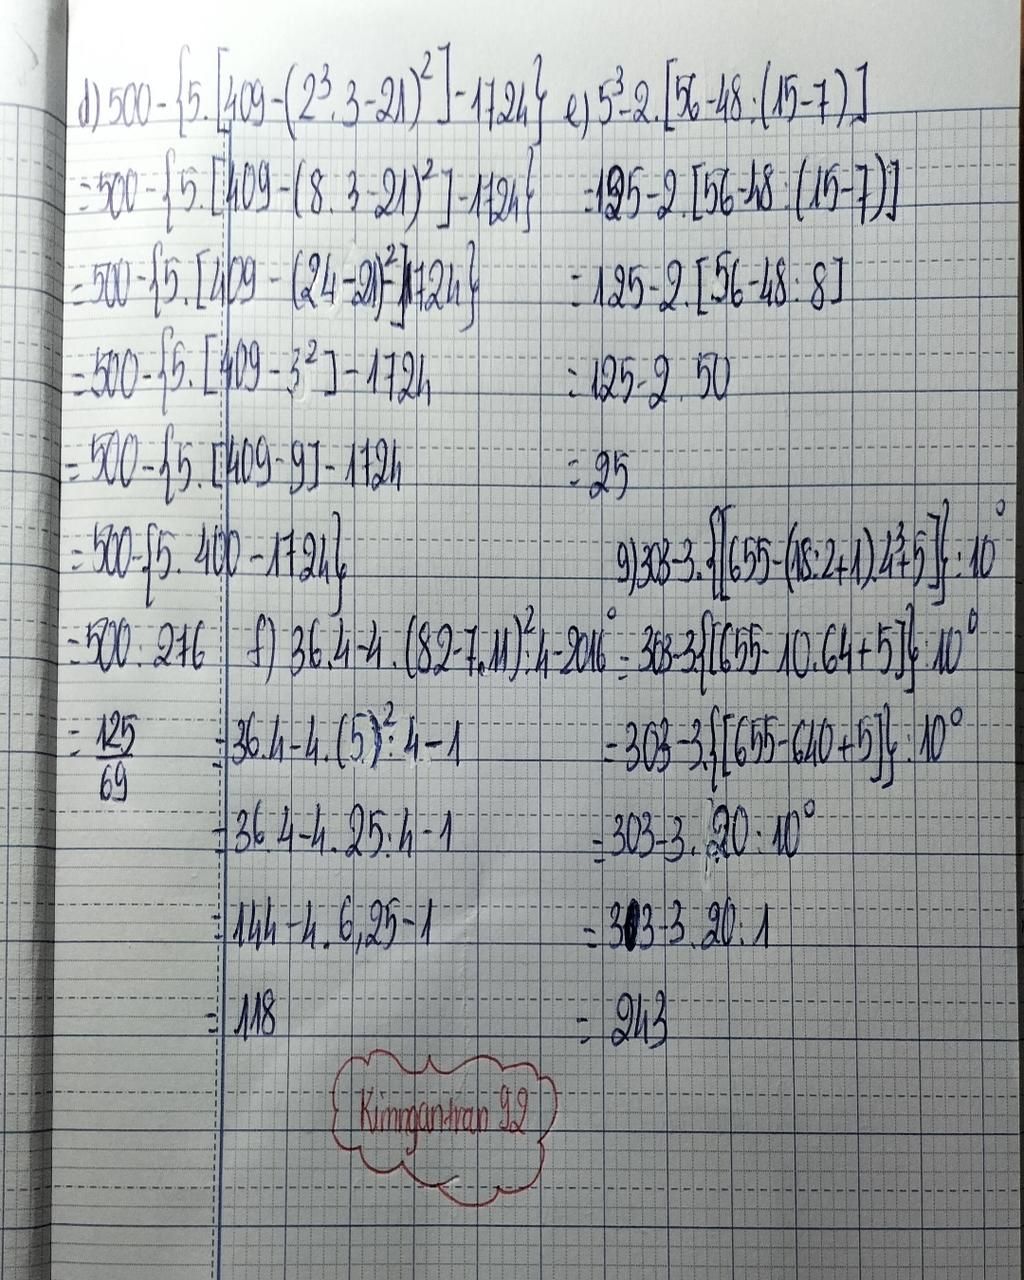 d) 500-{5.[409-(2³.3-21)²]-1724}
=500-{5.[409-(8.3-21)²]-1724}
=500-{5.[409-(24-21)²]-1724}
=500-{5.[409-3²]-1724
=500-{5.[409-9]-1724
=500-{5.400-1724}
=500:276
=125/69
e) 5³-2.[56-48:(15-7)]
=125-2.[56-48:(15-7)]
=125-2.[56-48:8]
=125-2.50
=25
f) 36.4-4.(82-7.11)²:4-2016⁰
=36.4-4.(5)²:4-1
=36.4-4.25:4-1
=144-4.6,25-1
=118
g) 303-3.{[655-(18:2+1).4³+5]}:10⁰
=303-3.{[655-10.64+5]}:10⁰
=303-3.{[655-640+5]}:10⁰
=303-3.20:10⁰
=303-3.20:1
=243
Kimngantran 92